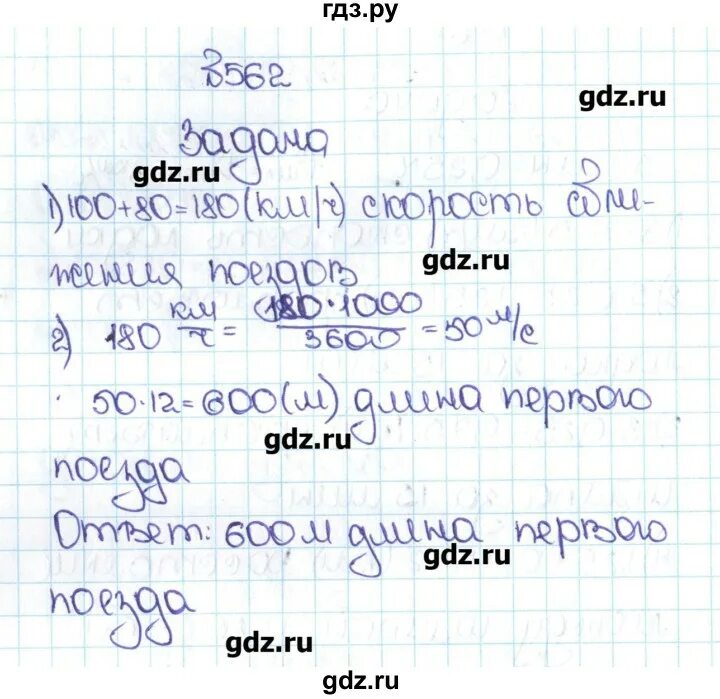 гдз.ру
В562
gdz.ru
Задача
gdz.ru
1) 100+80=180(км/ч) скорость сбли-
gdz.ru
жения поездов
2) 180 км/ч = 180·1000/3600 = 50 м/с
50·12=600(м) длина первого
gdz.ru
поезда
Ответ: 600м длина первого
gdz.ru
поезда
gdz.ru
gdz.ru